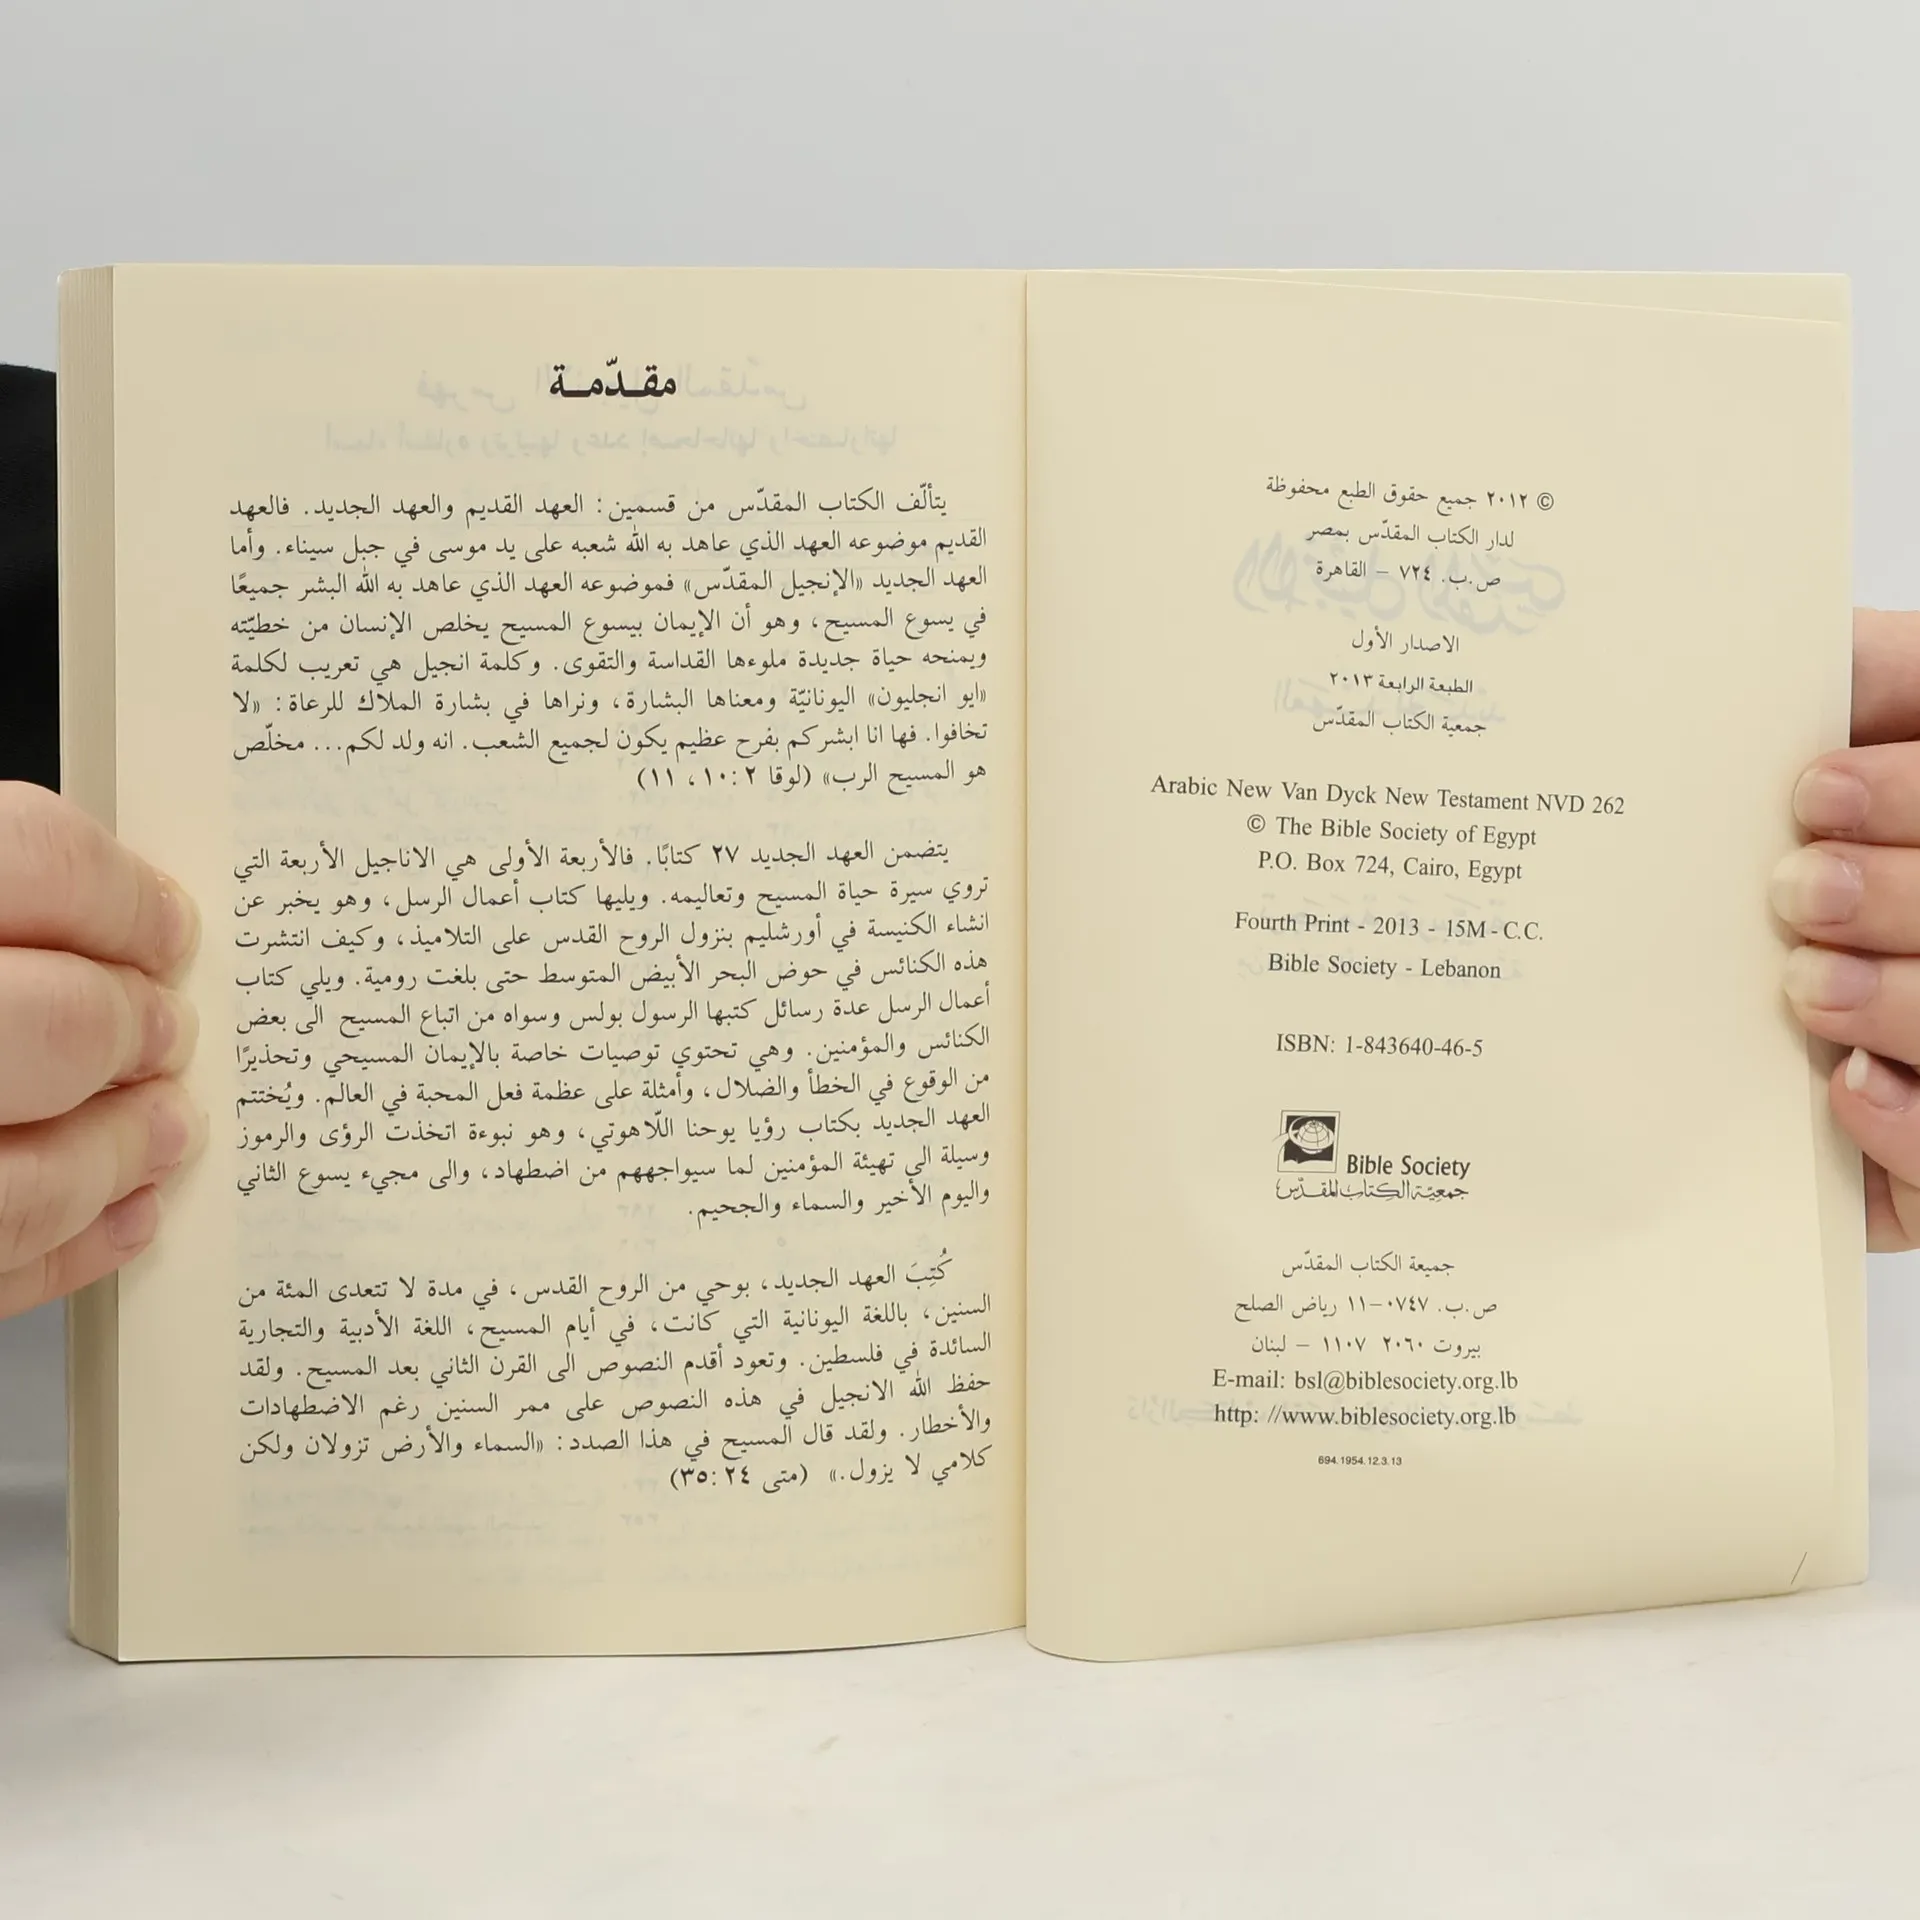 © ٢٠١٢ جميع حقوق الطبع محفوظة
لدار الكتاب المقدّس بمصر
ص.ب. ٧٢٤ – القاهرة
الاصدار الأول
الطبعة الرابعة ٢٠١٣
جمعية الكتاب المقدّس
Arabic New Van Dyck New Testament NVD 262
© The Bible Society of Egypt
P.O. Box 724, Cairo, Egypt
Fourth Print - 2013 - 15M - C.C.
Bible Society - Lebanon
ISBN: 1-843640-46-5
Bible Society
جمعيّة الكتاب المقدّس
جميعة الكتاب المقدّس
ص.ب. ٠٧٤٧–١١ رياض الصلح
بيروت ٢٠٦٠ ١١٠٧ – لبنان
E-mail: bsl@biblesociety.org.lb
http: //www.biblesociety.org.lb
694.1954.12.3.13
مقدّمة
يتألّف الكتاب المقدّس من قسمين: العهد القديم والعهد الجديد. فالعهد
القديم موضوعه العهد الذي عاهد به الله شعبه على يد موسى في جبل سيناء. وأما
العهد الجديد «الإنجيل المقدّس» فموضوعه العهد الذي عاهد به الله البشر جميعًا
في يسوع المسيح، وهو أن الإيمان بيسوع المسيح يخلص الإنسان من خطيّته
ويمنحه حياة جديدة ملوءها القداسة والتقوى. وكلمة انجيل هي تعريب لكلمة
«ايو انجليون» اليونانيّة ومعناها البشارة، ونراها في بشارة الملاك للرعاة: «لا
تخافوا. فها انا ابشركم بفرح عظيم يكون لجميع الشعب. انه ولد لكم... مخلّص
هو المسيح الرب» (لوقا ٢ :١٠، ١١)
يتضمن العهد الجديد ٢٧ كتابًا. فالأربعة الأولى هي الاناجيل الأربعة التي
تروي سيرة حياة المسيح وتعاليمه. ويليها كتاب أعمال الرسل، وهو يخبر عن
انشاء الكنيسة في أورشليم بنزول الروح القدس على التلاميذ، وكيف انتشرت
هذه الكنائس في حوض البحر الأبيض المتوسط حتى بلغت رومية. ويلي كتاب
أعمال الرسل عدة رسائل كتبها الرسول بولس وسواه من اتباع المسيح الى بعض
الكنائس والمؤمنين. وهي تحتوي توصيات خاصة بالإيمان المسيحي وتحذيرًا
من الوقوع في الخطأ والضلال، وأمثلة على عظمة فعل المحبة في العالم. ويُختتم
العهد الجديد بكتاب رؤيا يوحنا اللّاهوتي، وهو نبوءة اتخذت الرؤى والرموز
وسيلة الى تهيئة المؤمنين لما سيواجههم من اضطهاد، والى مجيء يسوع الثاني
واليوم الأخير والسماء والجحيم.
كُتِبَ العهد الجديد، بوحي من الروح القدس، في مدة لا تتعدى المئة من
السنين، باللغة اليونانية التي كانت، في أيام المسيح، اللغة الأدبية والتجارية
السائدة في فلسطين. وتعود أقدم النصوص الى القرن الثاني بعد المسيح. ولقد
حفظ الله الانجيل في هذه النصوص على ممر السنين رغم الاضطهادات
والأخطار. ولقد قال المسيح في هذا الصدد: «السماء والأرض تزولان ولكن
كلامي لا يزول.» (متى ٢٤ :٣٥)